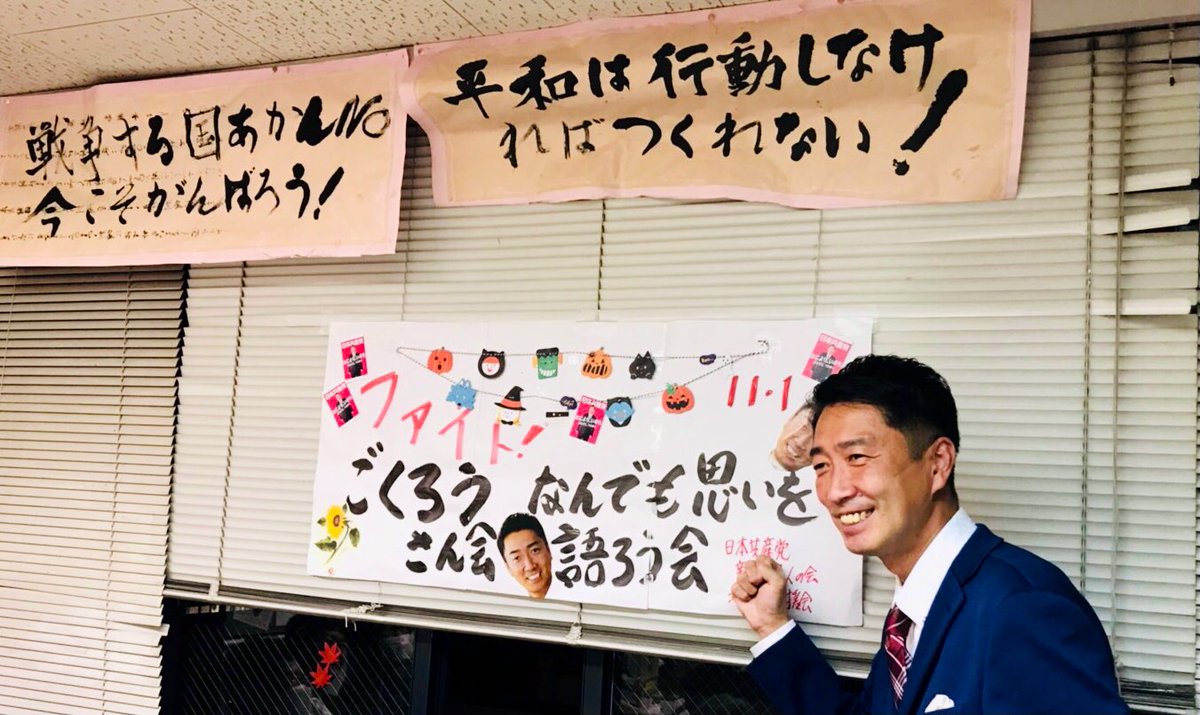 戦争する国あかんNO
今こそがんばろう!
平和は行動しなけ
ればつくれない!
ファイト!
11.1
ごくろう
さん会
なんでも思いを
語ろう会
日本共産党
人の会
日本共産党